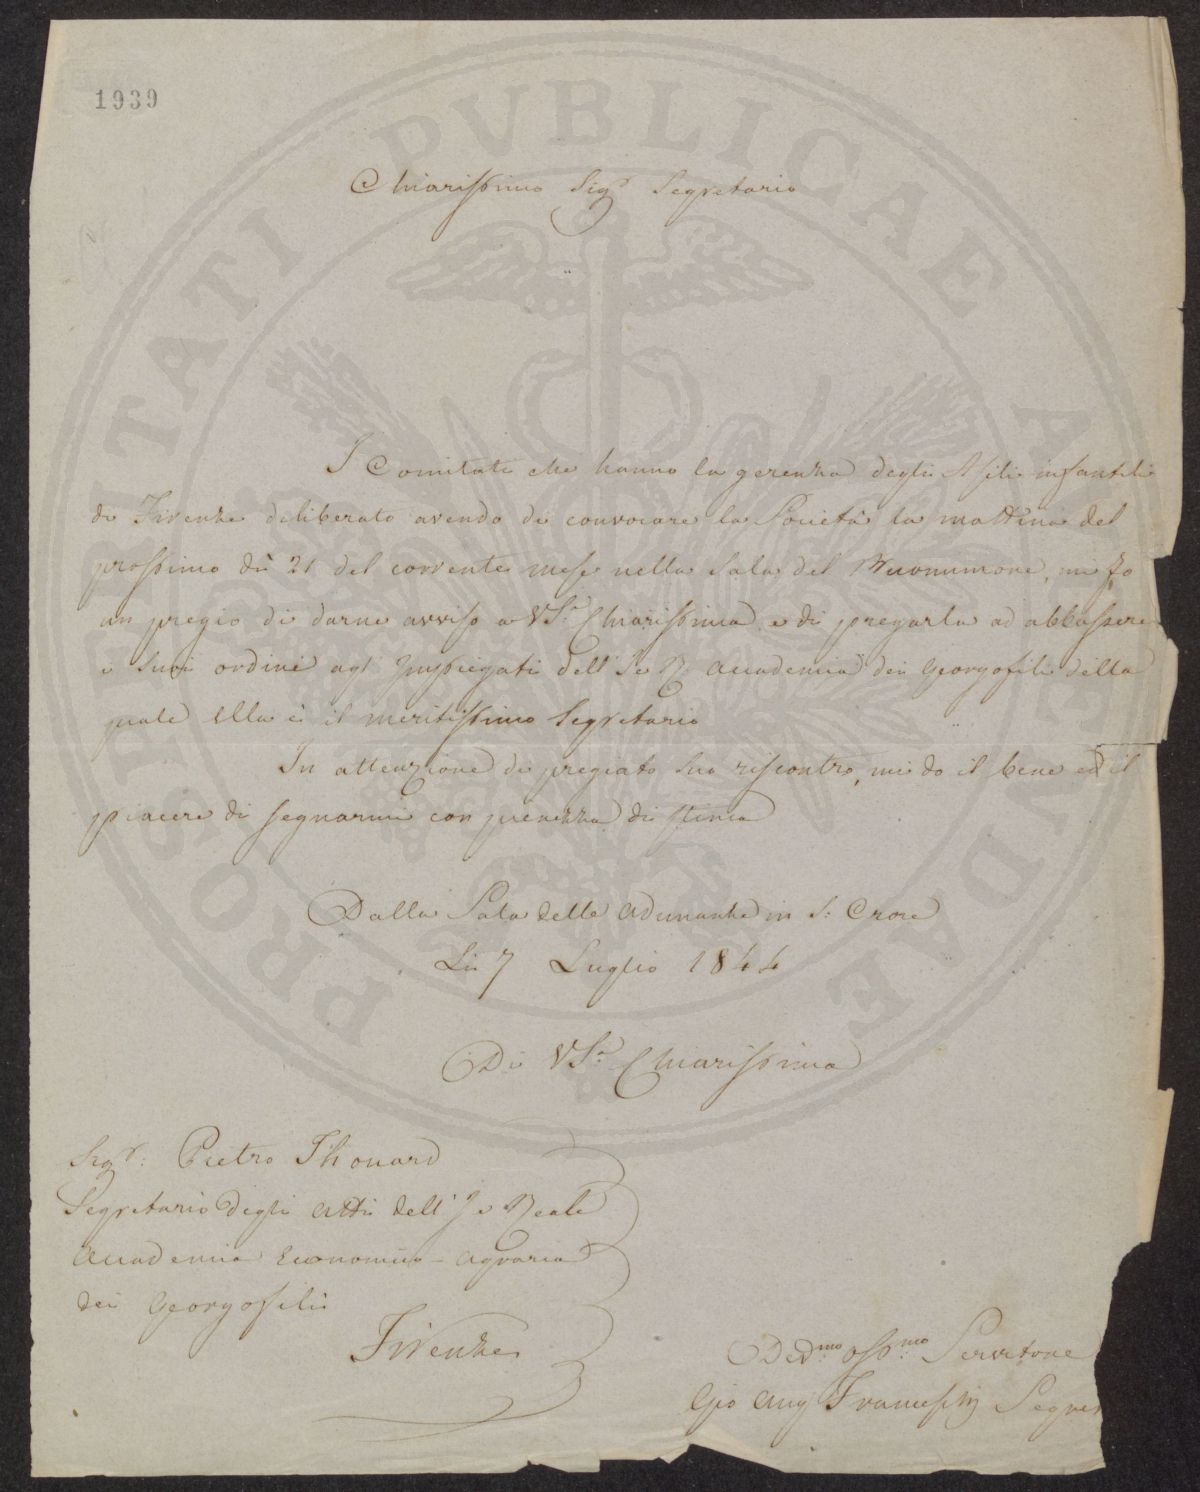 1939
PROSPERITATI PVBLICAE AVGENDAE
Chiarissimo Sig.r Segretario
I Comitati che hanno la gerenza degli Asili infantili
di Firenze deliberato avendo di convocare la Società la mattina del
prossimo dì 21 del corrente mese nella Sala del Buonumore, mi fo
un pregio di darne avviso a VS.a Chiarissima e di pregarla ad abbassare
i suoi ordini agl'Impiegati dell'I. e R. Accademia dei Georgofili della
quale Ella è il meritissimo Segretario
In attenzione di pregiato suo riscontro, mi do il bene ed il
piacere di segnarmi con pienezza di stima
Dalla Sala delle Adunanze in S: Croce
Li 7 Luglio 1844
Di VS.a Chiarissima
Sig.r: Pietro Thouard
Segretario degli Atti dell'I. e Reale
Accademia Economico-Agraria
dei Georgofili
Firenze
Dev.mo Obb.mo Servitore
Gio Aug Franceschi Segre